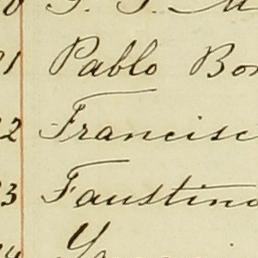 1 Pablo Bon
2 Francisc
3 Faustino